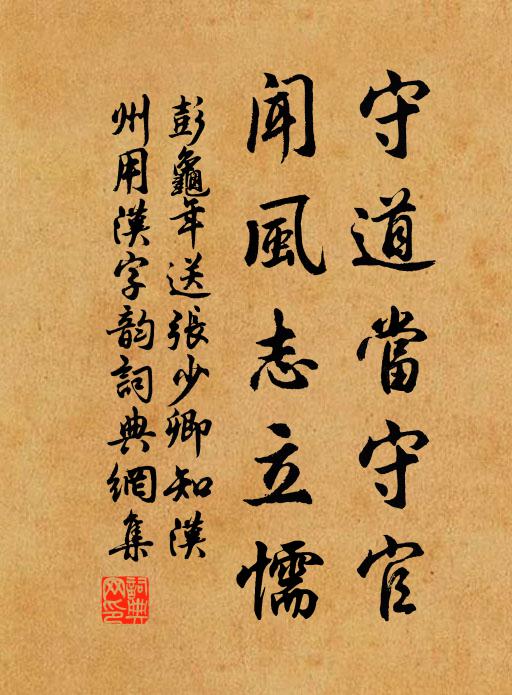 守道當守官
聞風志立懦
彭龜年送張少卿知漢
州用漢字韵詞典網集
詞典
网印